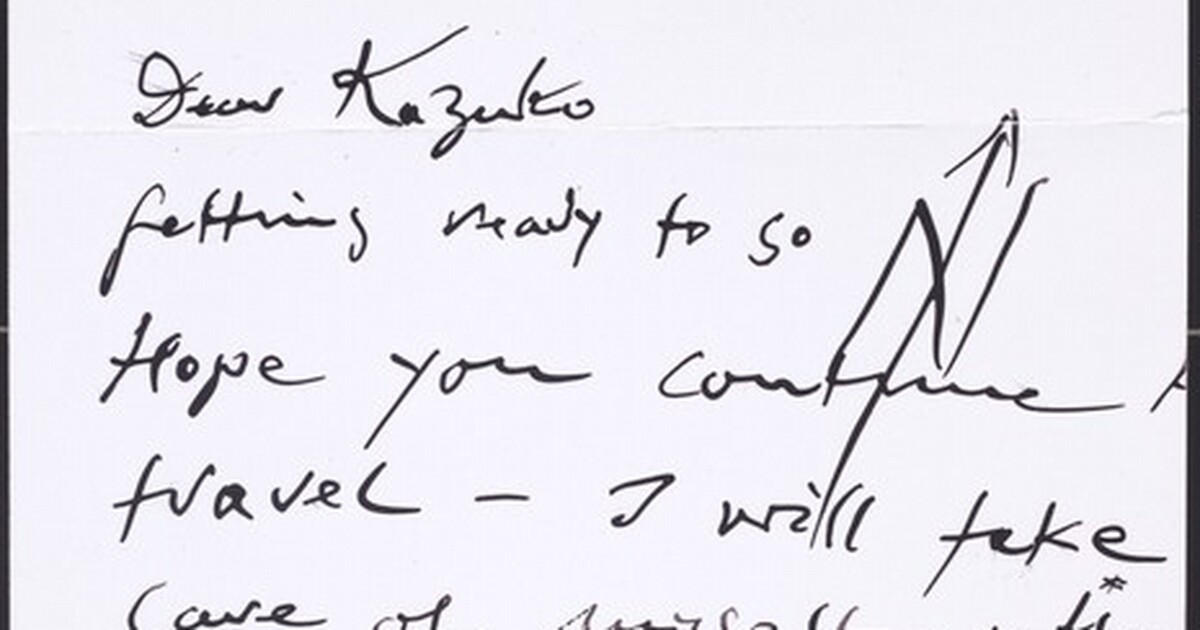 Dear Kazuko
getting ready to go N
Hope you continue
travel – I will take
care of myself